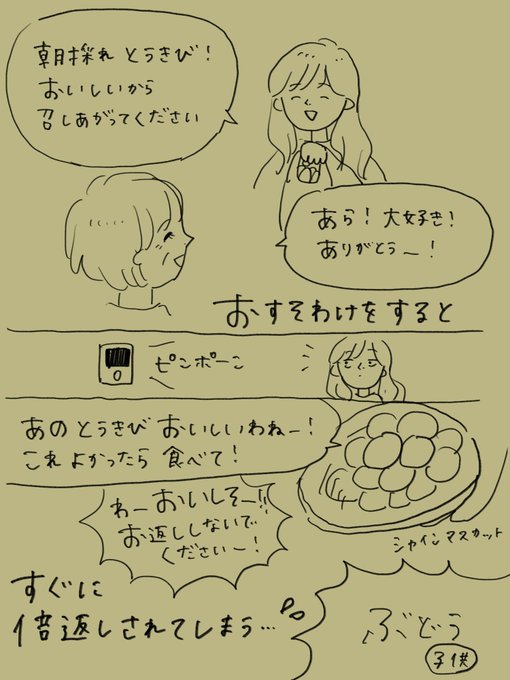 朝採れ とうきび！
おいしいから
召しあがってください
あら！大好き！
ありがとうー！
おすそわけをすると
ピンポーン
あのとうきび おいしいわねー！
これよかったら 食べて！
わーおいしそー！！
お返ししないで
くださいー！
シャインマスカット
すぐに
倍返しされてしまう…
ぶどう
子供